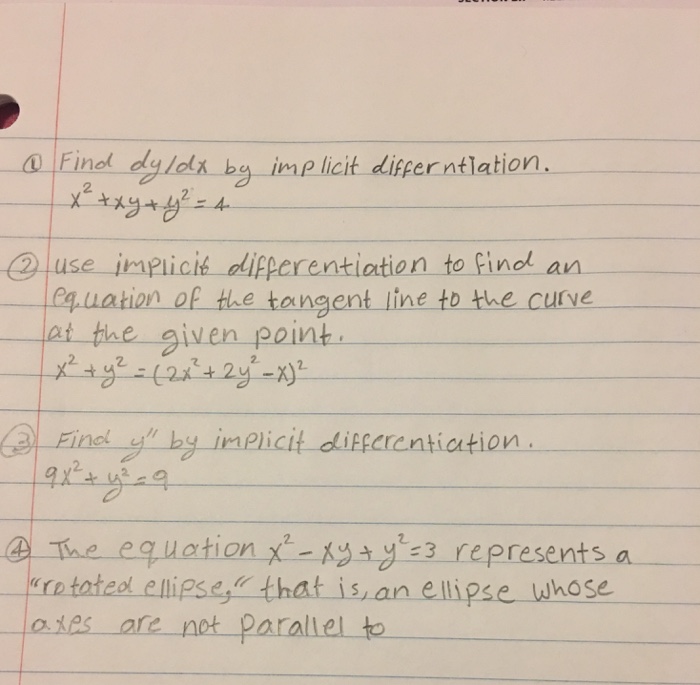 ① Find dy/dx by implicit differntiation.
x² + xy + y² = 4
② use implicit differentiation to find an
equation of the tangent line to the curve
at the given point.
x² + y² = (2x² + 2y² - x)²
③ Find y" by implicit differentiation.
9x² + y² = 9
④ The equation x² - xy + y² = 3 represents a
"rotated ellipse," that is, an ellipse whose
axes are not parallel to